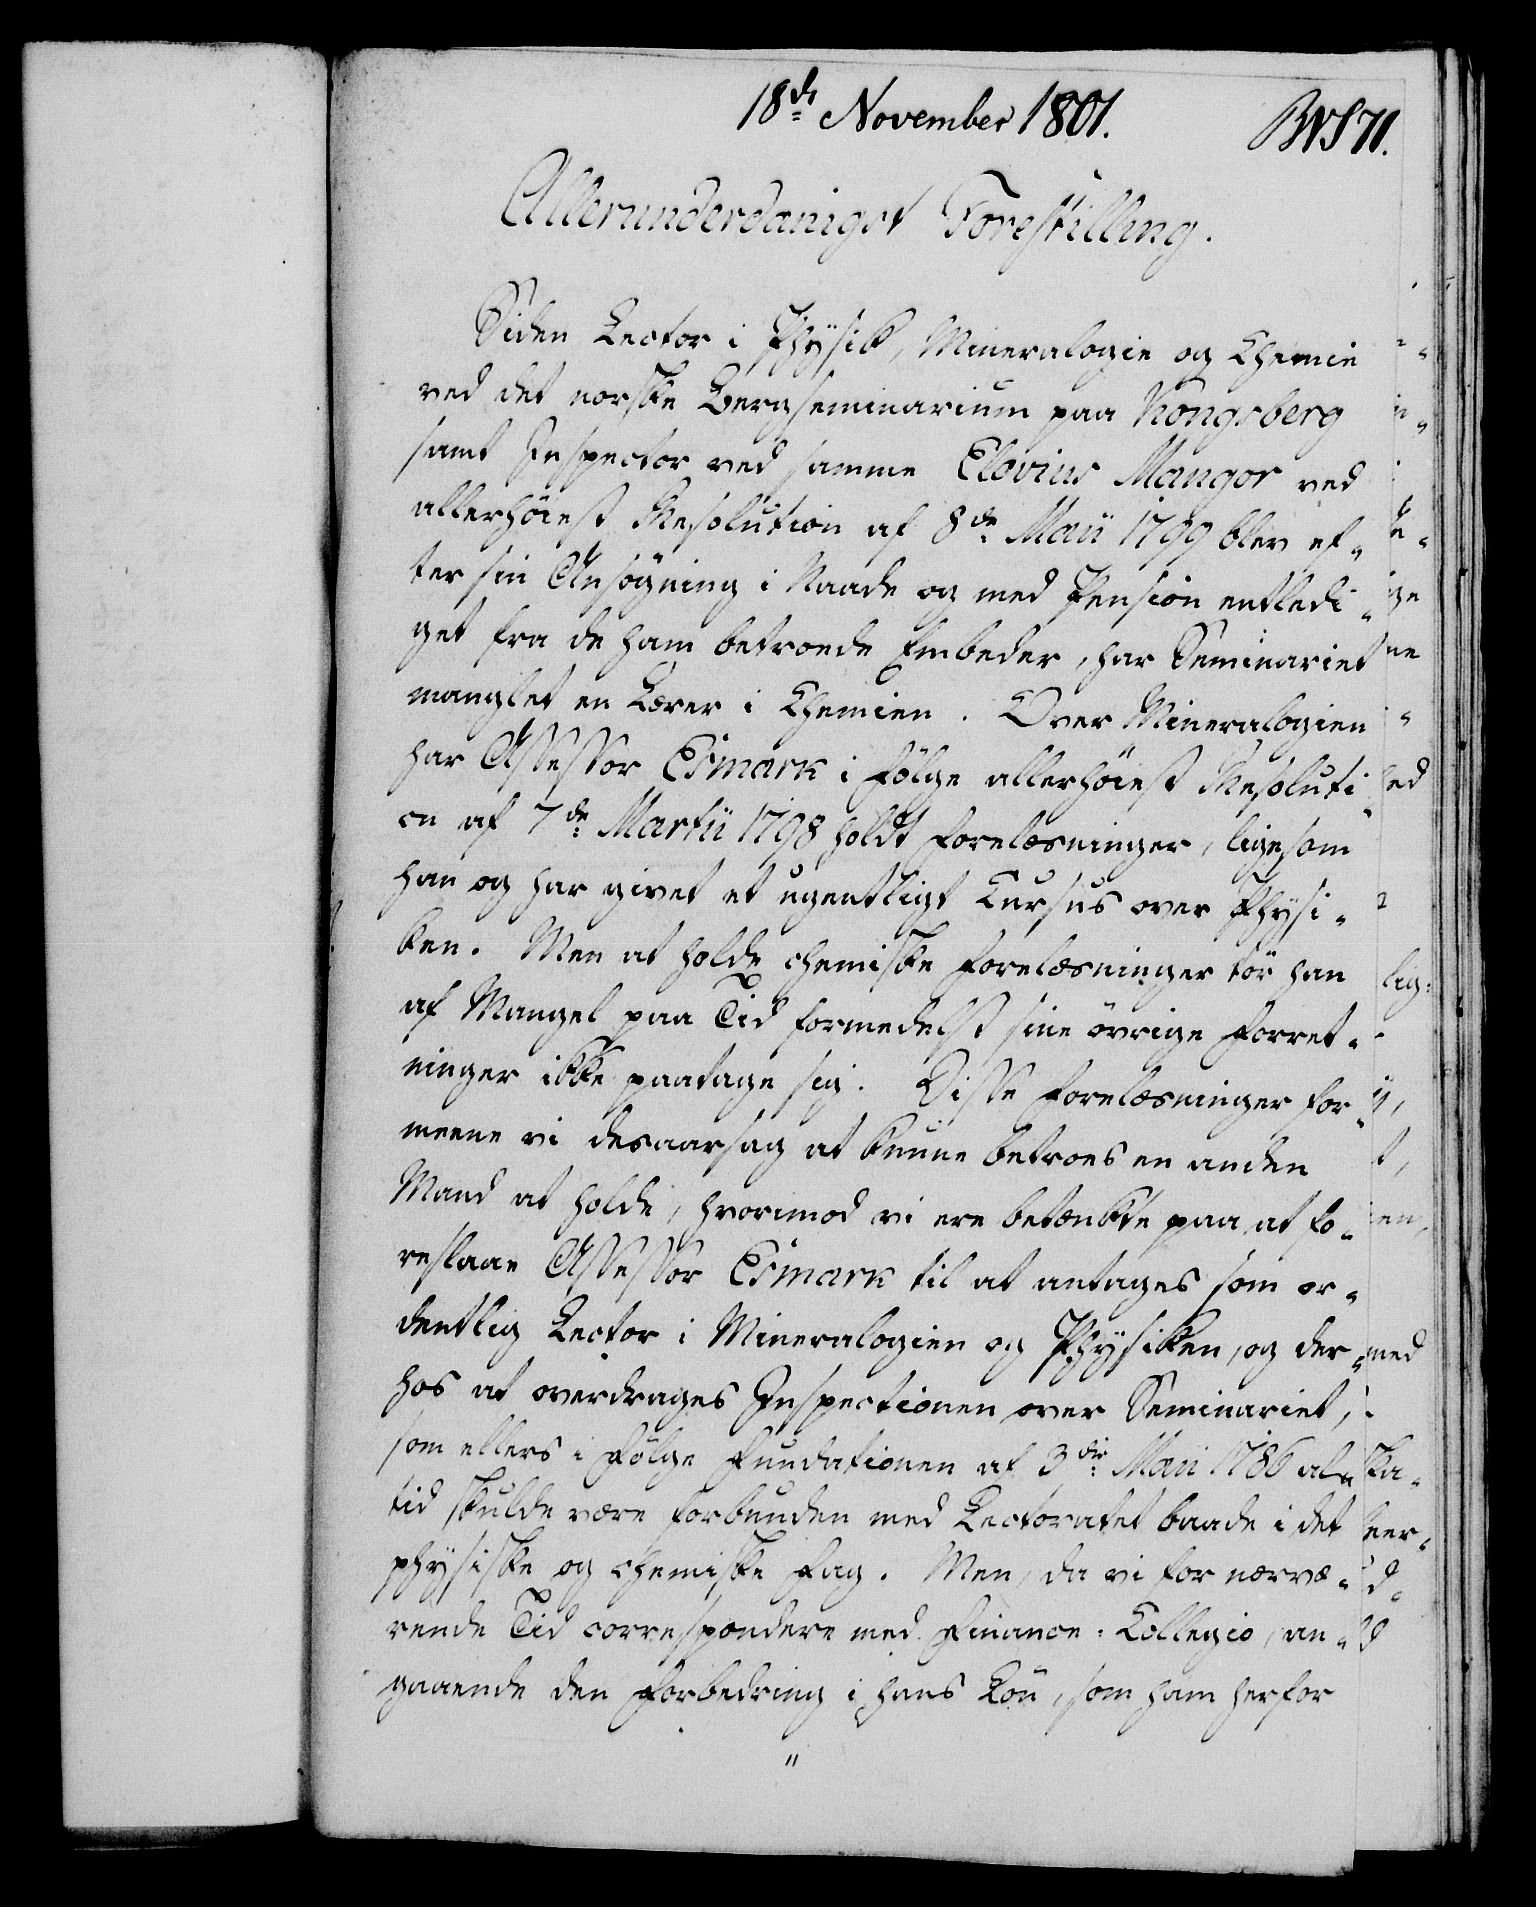 18de November 1801.
Allerunderdanigst Forestilling.
Siden Lector i Physik, Mineralogie og Chemie
ved det norske Bergseminarium paa Kongsberg
samt Inspector ved samme Elovius Mangor ved
allerhöiest Resolution af 8de Maii 1799 blev ef-
ter sin Ansögning i Naade og med Pension entledi-
get fra de ham betroede Embeder, har Seminariet
manglet en Lærer i Chemien. Over Mineralogien
har Assessor Esmark i Fölge allerhöiest Resoluti-
on af 7de Martii 1798 holdt Forelæsninger, ligesom
han og har givet et ugentligt Cursus over Physi-
ken. Men at holde chemiske Forelæsninger tör han
af Mangel paa Tid formedelst sine övrige Forret-
ninger ikke paatage sig. Disse Forelæsninger for-
meene vi desaarsag at kunne betroes en anden
Mand at holde, hvorimod vi ere betænkte paa at fo-
reslaae Assessor Esmark til at antages som or-
dentlig Lector i Mineralogien og Physiken, og der-
hos at overdrages Inspectionen over Seminariet,
som ellers i Fölge Fundationen af 3die Maii 1786 al-
tid skulde være forbunden med Lectoratet baade i det
physiske og chemiske Fag. Men, da vi for nærvæ-
rende Tid correspondere med Finance-Collegio, an-
gaaende den Forbedring i hans Lön, som ham herfor